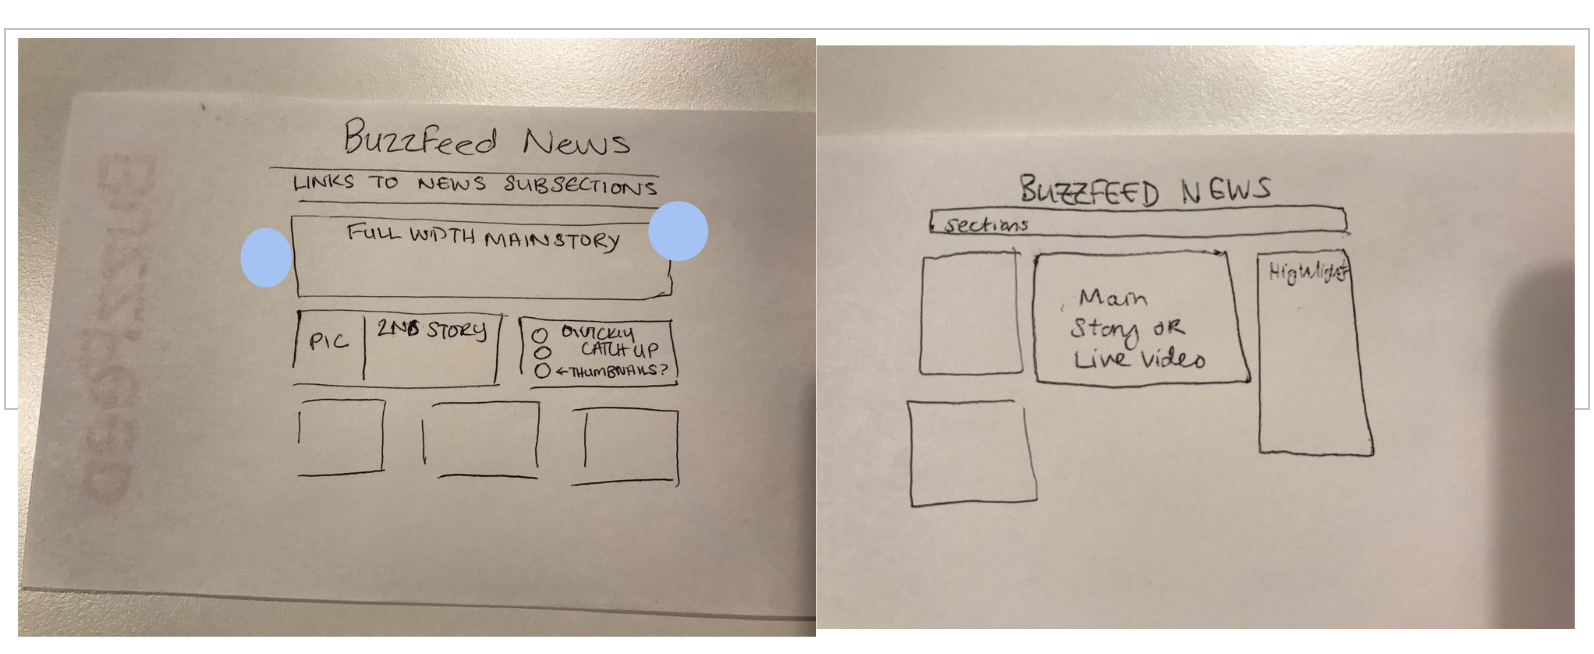 BuzzFeed News
LINKS TO NEWS SUBSECTIONS
FULL WIDTH MAIN STORY
PIC
2ND STORY
QUICKLY
CATCH UP
←THUMBNAILS?
BUZZFEED NEWS
Sections
Main
Story OR
Live Video
Highlight